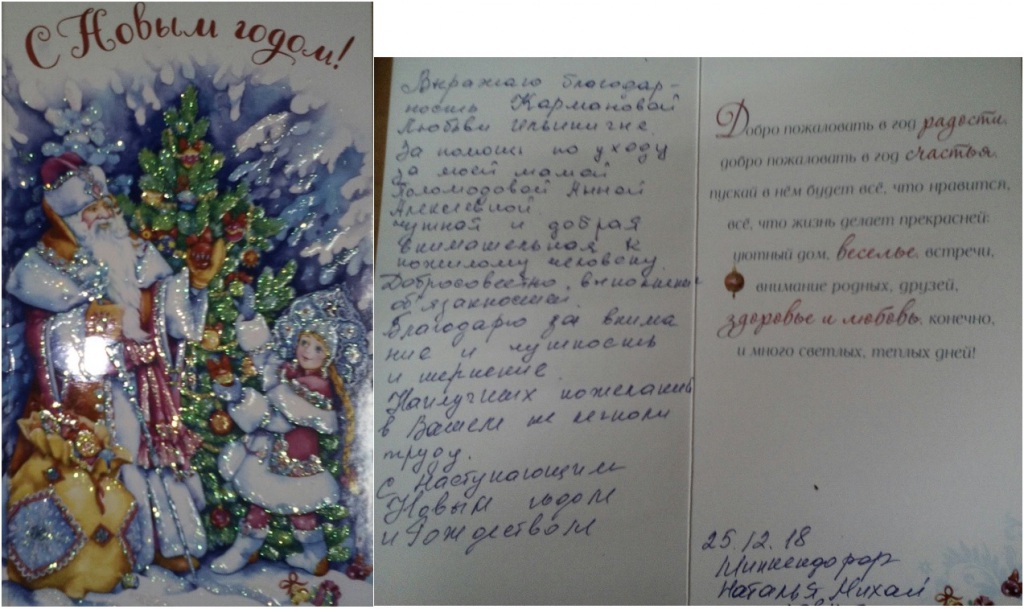 С Новым годом!
Выражаю благодар-
ность Кармановой
Любови Ильиничне.
За помощь по уходу
за моей мамой
Поломодовой Анной
Алексеевной.
чуткая и добрая
внимательная к
пожилому человеку.
Добросовестно, выполнение
обязанностей.
Благодарю за внима
ние и чуткость
и терпение.
Наилучших пожеланий
в Вашем не легком
труду.
С Наступающим
Новым годом
и Рождеством
Добро пожаловать в год радости,
добро пожаловать в год счастья,
пускай в нём будет всё, что нравится,
всё, что жизнь делает прекрасней:
уютный дом, веселье, встречи,
внимание родных, друзей,
здоровье и любовь, конечно,
и много светлых, теплых дней!
25.12.18
Наталья Михай